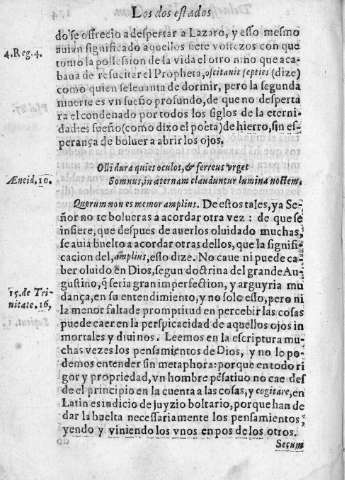 Los dos estados
do se ofrecio a despertar a Lazaro, y esso mesmo
4. Reg. 4.
significado aquellos siete vostezos con que
tomo la possession de la vida el otro niño que aca-
baua de resucitar el Propheta, oscitauit septies (dize)
como quien se leuanta de dormir, pero la segunda
muerte es vn sueño profundo, de que no desperta
ra el condenado por todos los siglos de la eterni-
dad: es sueño (como dixo el poeta) de hierro, sin es-
perança de boluer a abrir los ojos.
Olli dura quies oculos, & ferreus vrget
Æneid, 10.
Somnus, in æternam clauduntur lumina noctem.
Quorum non es memor amplius. De estos tales, ya Se-
ñor no te bolueras a acordar otra vez : de que se
infiere, que despues de auerlos oluidado muchas,
se auia buelto a acordar otras dellos, que la signifi-
cacion del, amplius, esso dize. No caue ni puede ca-
ber oluido en Dios, segun doctrina del grande Au-
15. de Tri-
nitate. 16,
gustino, q̃ seria gran imperfection, y arguyria mu
dança, en su entendimiento, y no solo esso, pero ni
la menor falta de promptitud en percebir las cosas
puede caer en la perspicacidad de aquellos ojos in
mortales y diuinos. Leemos en la escriptura mu-
chas vezes los pensamientos de Dios, y no lo po-
demos entender sin metaphora: por que en todo ri
gor y propriedad, vn hombre pẽsatiuo no cae des
de el principio en la cuenta a las cosas, y cogitare, en
Latin es indicio de juyzio boltario, porque han de
dar la buelta necessariamente los pensamientos,
yendo y viniendo los vnos en pos de los otros.
Secum